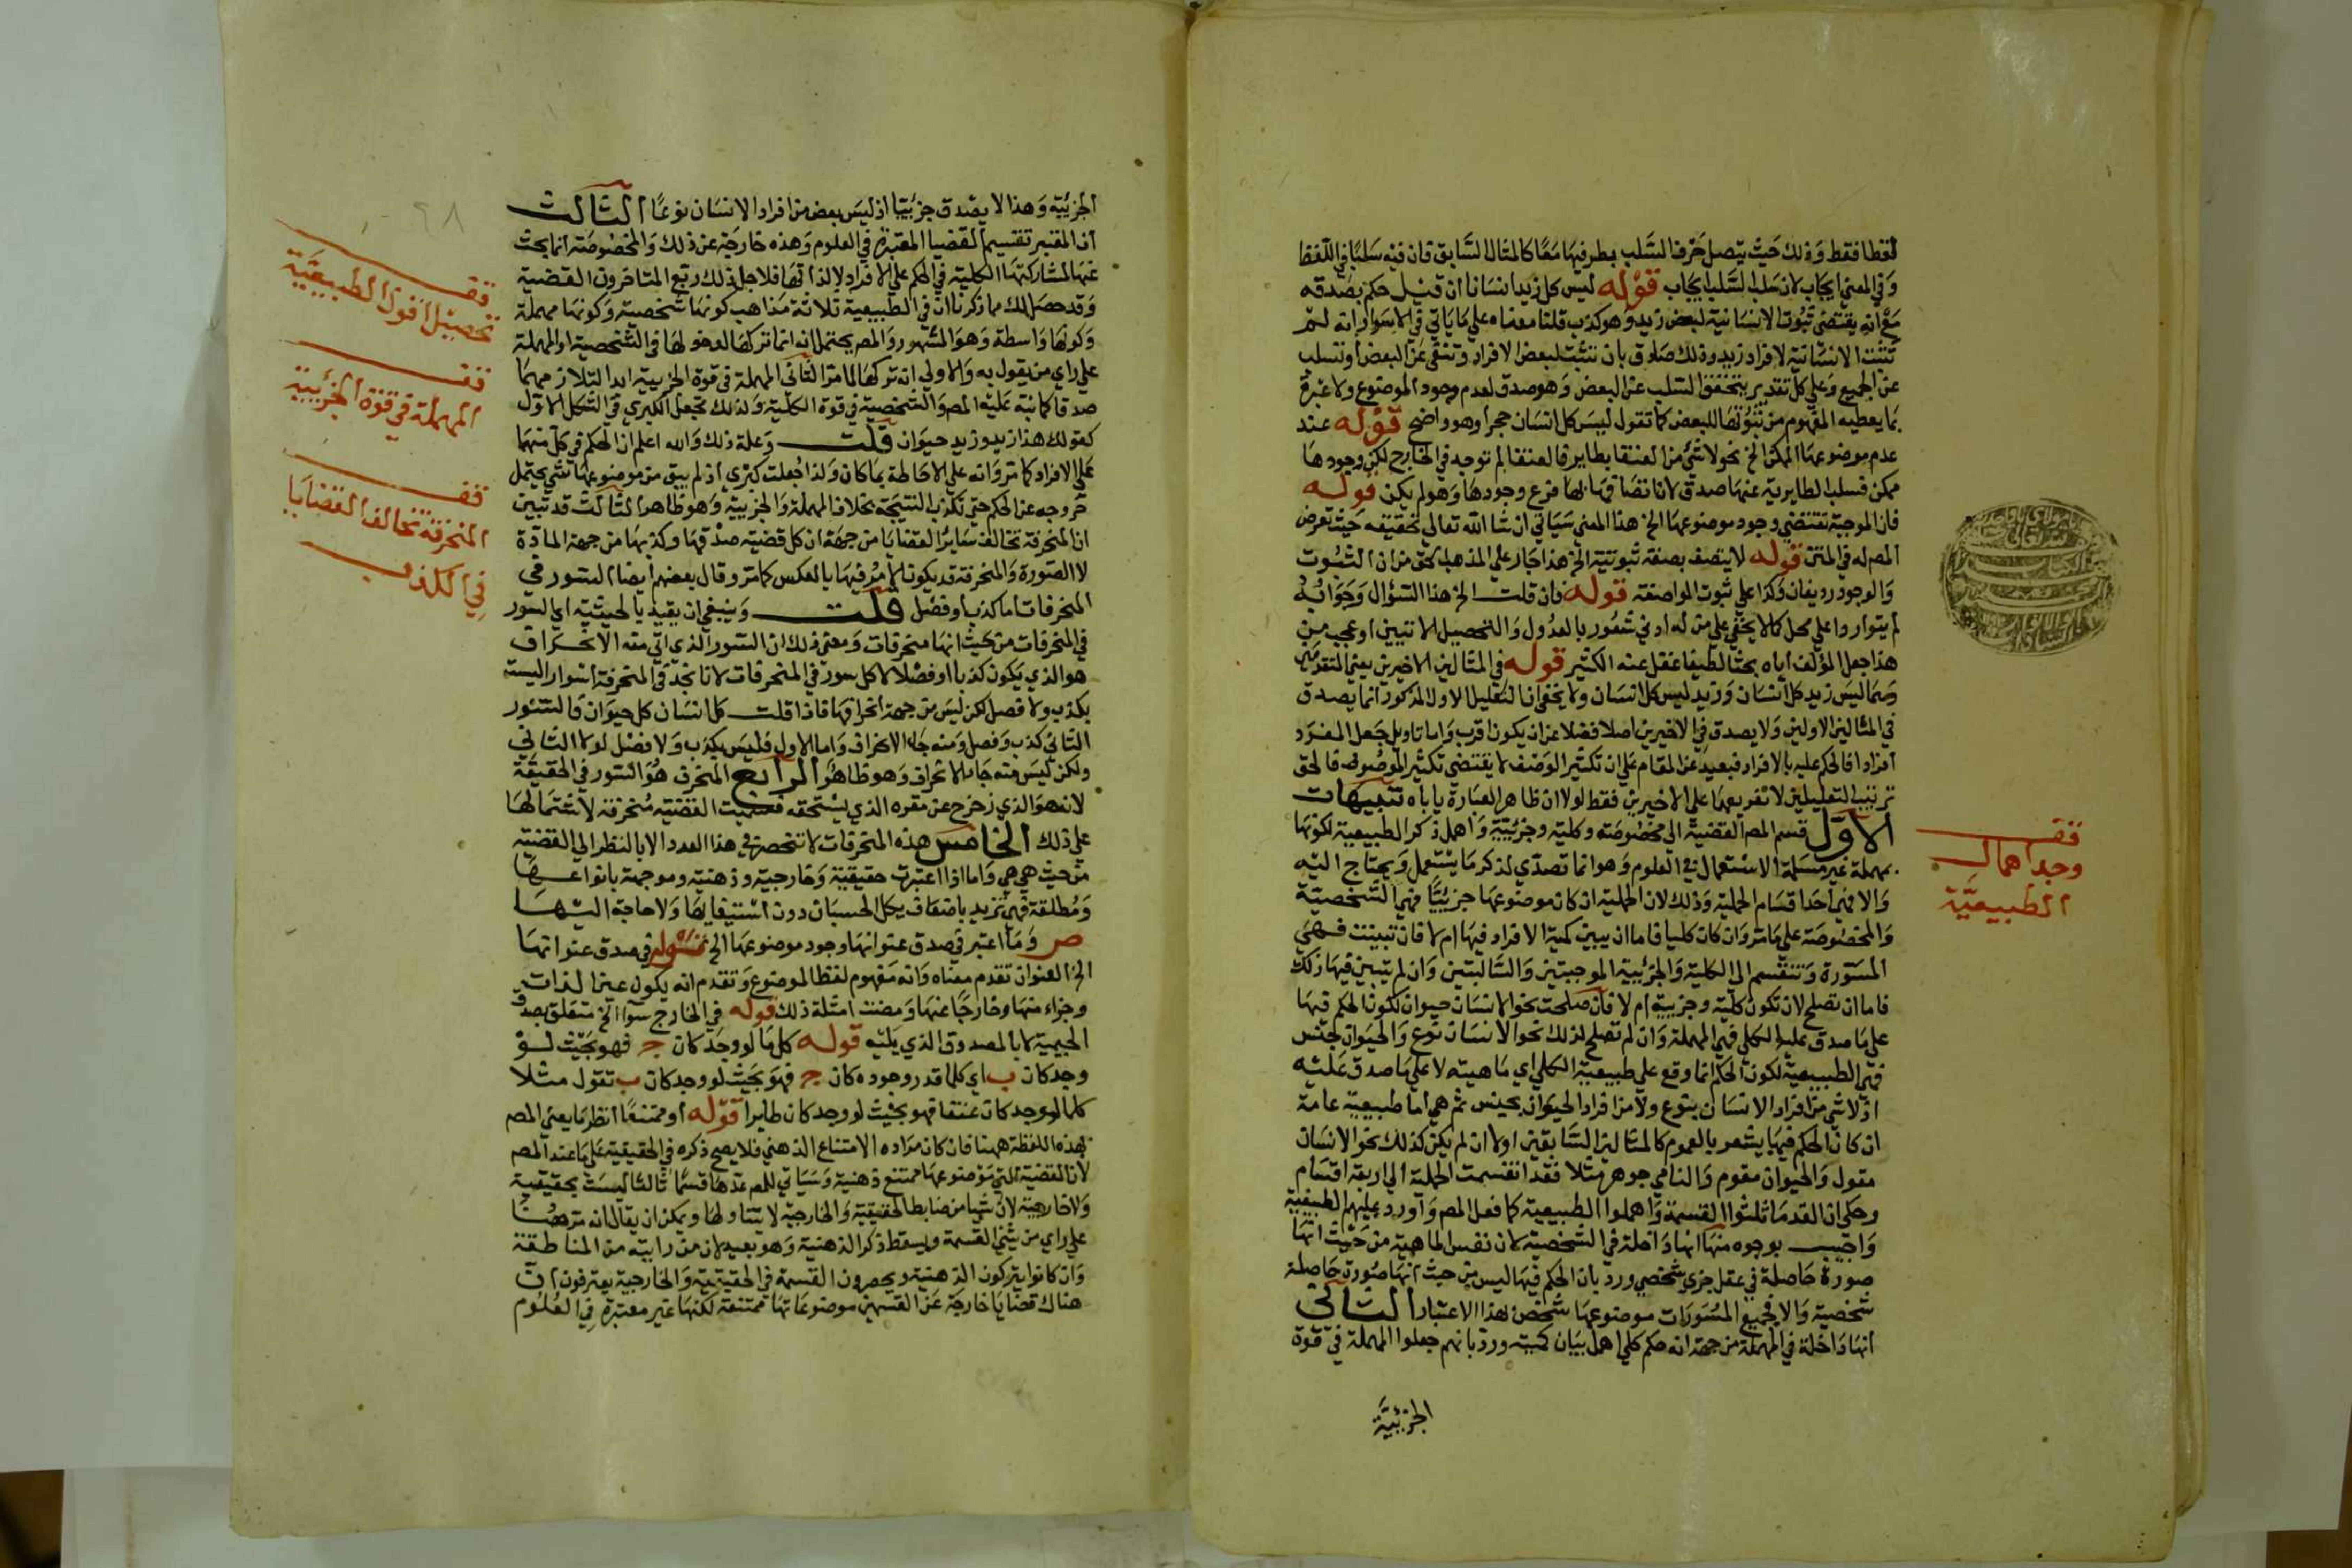 لفظا فقط وذلك حيث يتصل حرف السلب بطرفيها معا كالمثال السابق فان فيه سلبا في اللفظ
وفي المعنى ايجاب لان سلب السلب ايجاب قوله ليس كل زيد انسانا ان قيل حكم بصدقه
مع انه يقتضي ثبوت الانسانية لبعض زيد وهو كذب قلنا معناه على ما ياتي في الاسوار انه لم
تثبت الانسانية لافراد زيد وذلك صادق بان تثبت لبعض الافراد وتنفى عن البعض او تسلب
عن الجميع وعلى كل تقدير يتحقق السلب عن البعض وهو صدق لعدم وجود الموضوع ولا عبرة
بما يعطيه المفهوم من ثبوتها للبعض كما تقول ليس كل انسان حجرا وهو واضح قوله عند
عدم موضوعها الممكن الخ نحو لا شيء من العنقا بطاير فالعنقا لم توجد في الخارج لكن وجودها
ممكن فسلب الطايرية عنها صدق لان اتصافها بها فرع وجودها وهو لم يكن قوله
فان الموجبة تقتضي وجود موضوعها الخ هذا المعنى سياتي ان شا الله تعالى تحقيقه حيث تعرض
المص له في المتن قوله لا يتصف بصفة ثبوتية الخ هذا جار على المذهب الحق من ان الثبوت
والوجود رديفان وكذا على ثبوت الواصفة قوله فان قلت الخ هذا السؤال وجوابه
لم يتواردا على محل كما لا يخفى على من له ادنى شعور بالعدول والتحصيل الاتيين او عجيب من
هذا جعل المؤلف اياه بحثا لطيفا غفل عنه الكثير قوله في المثالين الاخيرين يعني المتقدمين
وهما ليس زيد كل انسان وزيد ليس كل انسان ولا يخفى ان التعليل الاول المذكور انما يصدق
في المثالين الاولين ولا يصدق في الاخيرين اصلا فضلا عن ان يكون اقرب واما تاويل جعل المفرد
افرادا فالحكم عليه بالافراد فبعيد عن المقام على ان تكثير الوصف لا يقتضي تكثير الموصوف فالحق
ترتيب التعليلين لا تفريعهما على الاخيرين فقط لولا ان ظاهر العبارة ياباه تنبيهات
الاول قسم المص القضية الى مخصوصة وكلية وجزئية واهمل ذكر الطبيعية لكونها
مهملة غير مستعملة الاستعمال في العلوم وهو انما تصدى لذكر ما يستعمل ويحتاج اليه
والا فهي احد اقسام الحملية وذلك لان الحملية ان كان موضوعها جزئيا فهي الشخصية
والمخصوصة على ما مر وان كان كليا فاما ان يبين كمية الافراد فيها ام لا فان تبينت فهي
المسورة وتنقسم الى الكلية والجزئية الموجبتين والسالبتين وان لم يتبين فيها ذلك
فاما ان تصلح لان تكون كلية وجزيية ام لا فان صلحت نحو الانسان حيوان لكون الحكم فيها
على ما صدق عليه الكلي فهي المهملة وان لم تصلح لذلك نحو الانسان نوع والحيوان جنس
فهي الطبيعية لكون الحكم انما وقع على طبيعية الكلي اي ماهيته لا على ما صدق عليه
اذ لا شي من افراد الانسان بنوع ولا من افراد الحيوان بجنس ثم هي اما طبيعية عامة
ان كان الحكم فيها يشعر بالعموم كالمثالين السابقين اولا ان لم يكن كذلك نحو الانسان
مقول والحيوان مقوم والنامي جوهر مثلا فقد انقسمت الحملية الى اربعة اقسام
وحكى ان القدما ثلثوا القسمة واهملوا الطبيعية كما فعل المص واورد عليهم الطبيعية
واجيب بوجوه منها انها داخلة في الشخصية لان نفس الماهية من حيث انها
صورة حاصلة في عقل جزي شخصي ورد بان الحكم فيها ليس من حيث انها صورة حاصلة
شخصية والا فجميع المسورات موضوعها شخص بهذا الاعتبار الثاني
انها داخلة في المهملة من جهة انه حكم كلي اهمل بيان كميته ورد بانهم جعلوا المهملة في قوة
الجزئية
فقـ
وجد اهمال
الطبيعية
الجزئية وهذا لا يصدق جزييا اذ ليس بعض من افراد الانسان نوعا الثالث
ان المعتبر تقسيم القضيا المعتبرة في العلوم وهذه خارجة عن ذلك والمخصوصة انما بحث
عنها لمشاركتها الكلية في الحكم على الافراد لا لذاتها فلاجل ذلك ربع المتاخرون القضية
وقد حصل لك مما ذكرنا ان في الطبيعية ثلاثة مذاهب كونها شخصية وكونها مهملة
وكونها واسطة وهو المشهور والمص يحتمل انه انما تركها لدخولها في الشخصية او المهملة
على راي من يقول به والاولى انه تركها لما مر الثاني المهملة في قوة الجزيية ابدا لتلازمهما
صدقا كما نبه عليه المص والشخصية في قوة الكلية ولذلك تجعل الكبرى في الشكل الاول
كقولك هذا زيد وزيد حيوان قلت وعلة ذلك والله اعلم ان الحكم في كل منهما
على الافراد كما مر وانه على الاحاطة بما كان ولذا جعلت كبرى اذ لم يبق من موضوعها شي يحتمل
خروجه عن الحكم حتى تكذب النتيجة بخلاف المهملة والجزيية وهو ظاهر الثالث قد تبين
ان المنحرفة تخالف ساير القضايا من جهة ان كل قضية صدقها وكذبها من جهة المادة
لا الصورة والمنحرفة قد يكون الامر فيها بالعكس كما مر وقال بعضهم ايضا السور في
المنحرفات اما كذب او فضل قلت وينبغي ان يقيد بالحيثية اي السور
في المنحرفات من حيث انها منحرفات ومعنى ذلك ان السور الذي اتى معه الانحراف
هو الذي يكون كذبا او فضلا لا كل سور في المنحرفات لانا نجد في المنحرفة اسوارا ليست
بكذب ولا فضل لكن ليس من جهة انحرافها فاذا قلت كل انسان كل حيوان فالسور
الثاني كذب وفضل ومنه جا الانحراف واما الاول فليس بكذب ولا فضل لولا الثاني
ولكن ليس منه جا الانحراف وهو ظاهر الرابع المنحرف هو السور في الحقيقة
لانه هو الذي زحزح عن مقره الذي يستحقه فسميت القضية منحرفة لاشتمالها
على ذلك الخامس هذه المنحرفات لا تنحصر في هذا العدد الا بالنظر الى القضية
من حيث هي هي واما اذا اعتبرت حقيقية وخارجية وذهنية وموجهة بانواعها
ومطلقة فهي تزيد باضعاف يكل الحسبان دون استيفايها ولا حاجة اليها
ص وما اعتبر في صدق عنوانها وجود موضوعها الخ قوله في صدق عنوانها
الخ العنوان تقدم معناه وانه مفهوم لفظ الموضوع وتقدم انه يكون عين الذات
وجزاء منها وخارجا عنها ومضت امثلة ذلك قوله في الخارج سوا الخ متعلق بصدق
الجيمية لا بالمصدوق الذي يليه قوله كل ما لو وجد كان ج فهو بحيث لو
وجد كان ب اي كلما قدر وجوده كان ج فهو بحيث لو وجد كان ب تقول مثلا
كلما لو وجد كان عنقا فهو بحيث لو وجد كان طايرا قوله او ممتنعا انظر ما يعني المص
بهذه اللفظة هنا فان كان مراده الامتناع الذهني فلا يصح ذكره في الحقيقية على ما عند المص
لان القضية التي موضوعها ممتنع ذهنية وسياتي للمص عدها قسما ثالثا ليست بحقيقية
ولا خارجية لان شيا من ضابط الحقيقية والخارجية لا يتناولها ويمكن ان يقال انه مر هنا
على راي من يثني القسمة ويسقط ذكر الذهنية وهو بعيد لان من رايته من المناطقة
وان كانوا يتركون الذهنية ويحصرون القسمة في الحقيقية والخارجية يعترفون ان
هناك قضايا خارجة عن القسمين موضوعاتها ممتنعة لكنها غير معتبرة في العلوم
فقـ
تحصيل اقوال الطبيعية
فقـ
المهملة في قوة الجزئية
فقـ
المنحرفة تخالف القضايا
في الكذب
٩٨